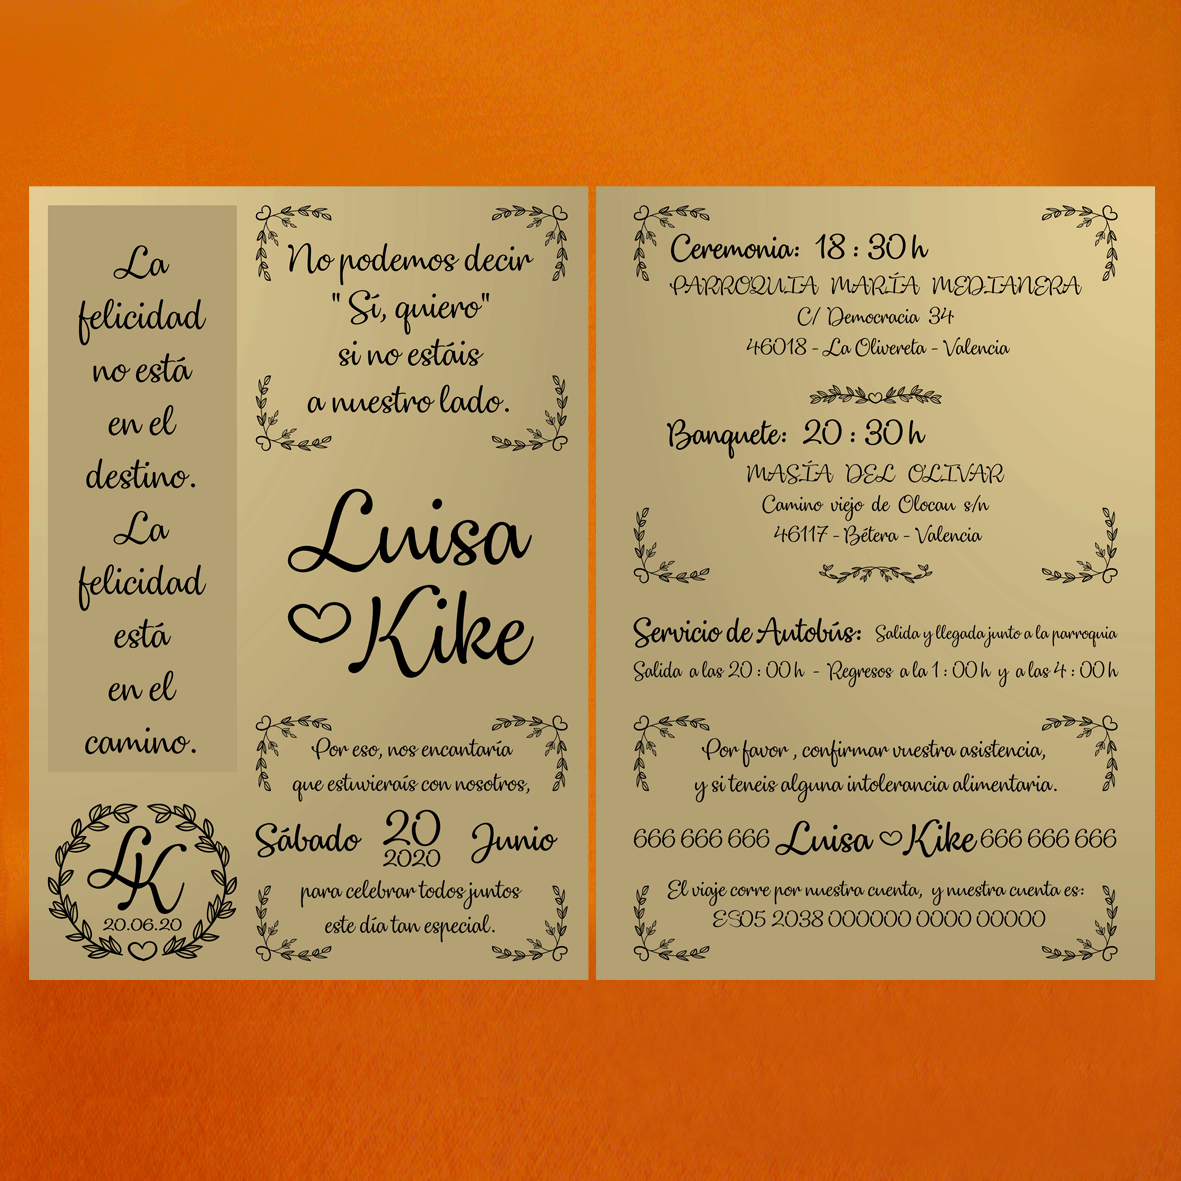 La
felicidad
no está
en el
destino.
La
felicidad
está
en el
camino.
LK
20.06.20
No podemos decir
"Sí, quiero"
si no estáis
a nuestro lado.
Luisa
Kike
Por eso, nos encantaría
que estuvieraís con nosotros,
Sábado 20 Junio
2020
para celebrar todos juntos
este día tan especial.
Ceremonia: 18:30 h
PARROQUIA MARÍA MEDIANERA
C/ Democracia 34
46018 - La Olivereta - Valencia
Banquete: 20:30 h
MASÍA DEL OLIVAR
Camino viejo de Olocau s/n
46117 - Bétera - Valencia
Servicio de Autobús: Salida y llegada junto a la parroquia
Salida a las 20:00 h - Regresos a la 1:00 h y a las 4:00 h
Por favor, confirmar vuestra asistencia,
y si teneis alguna intolerancia alimentaria.
666 666 666 Luisa Kike 666 666 666
El viaje corre por nuestra cuenta, y nuestra cuenta es:
ES05 2038 000000 0000 00000